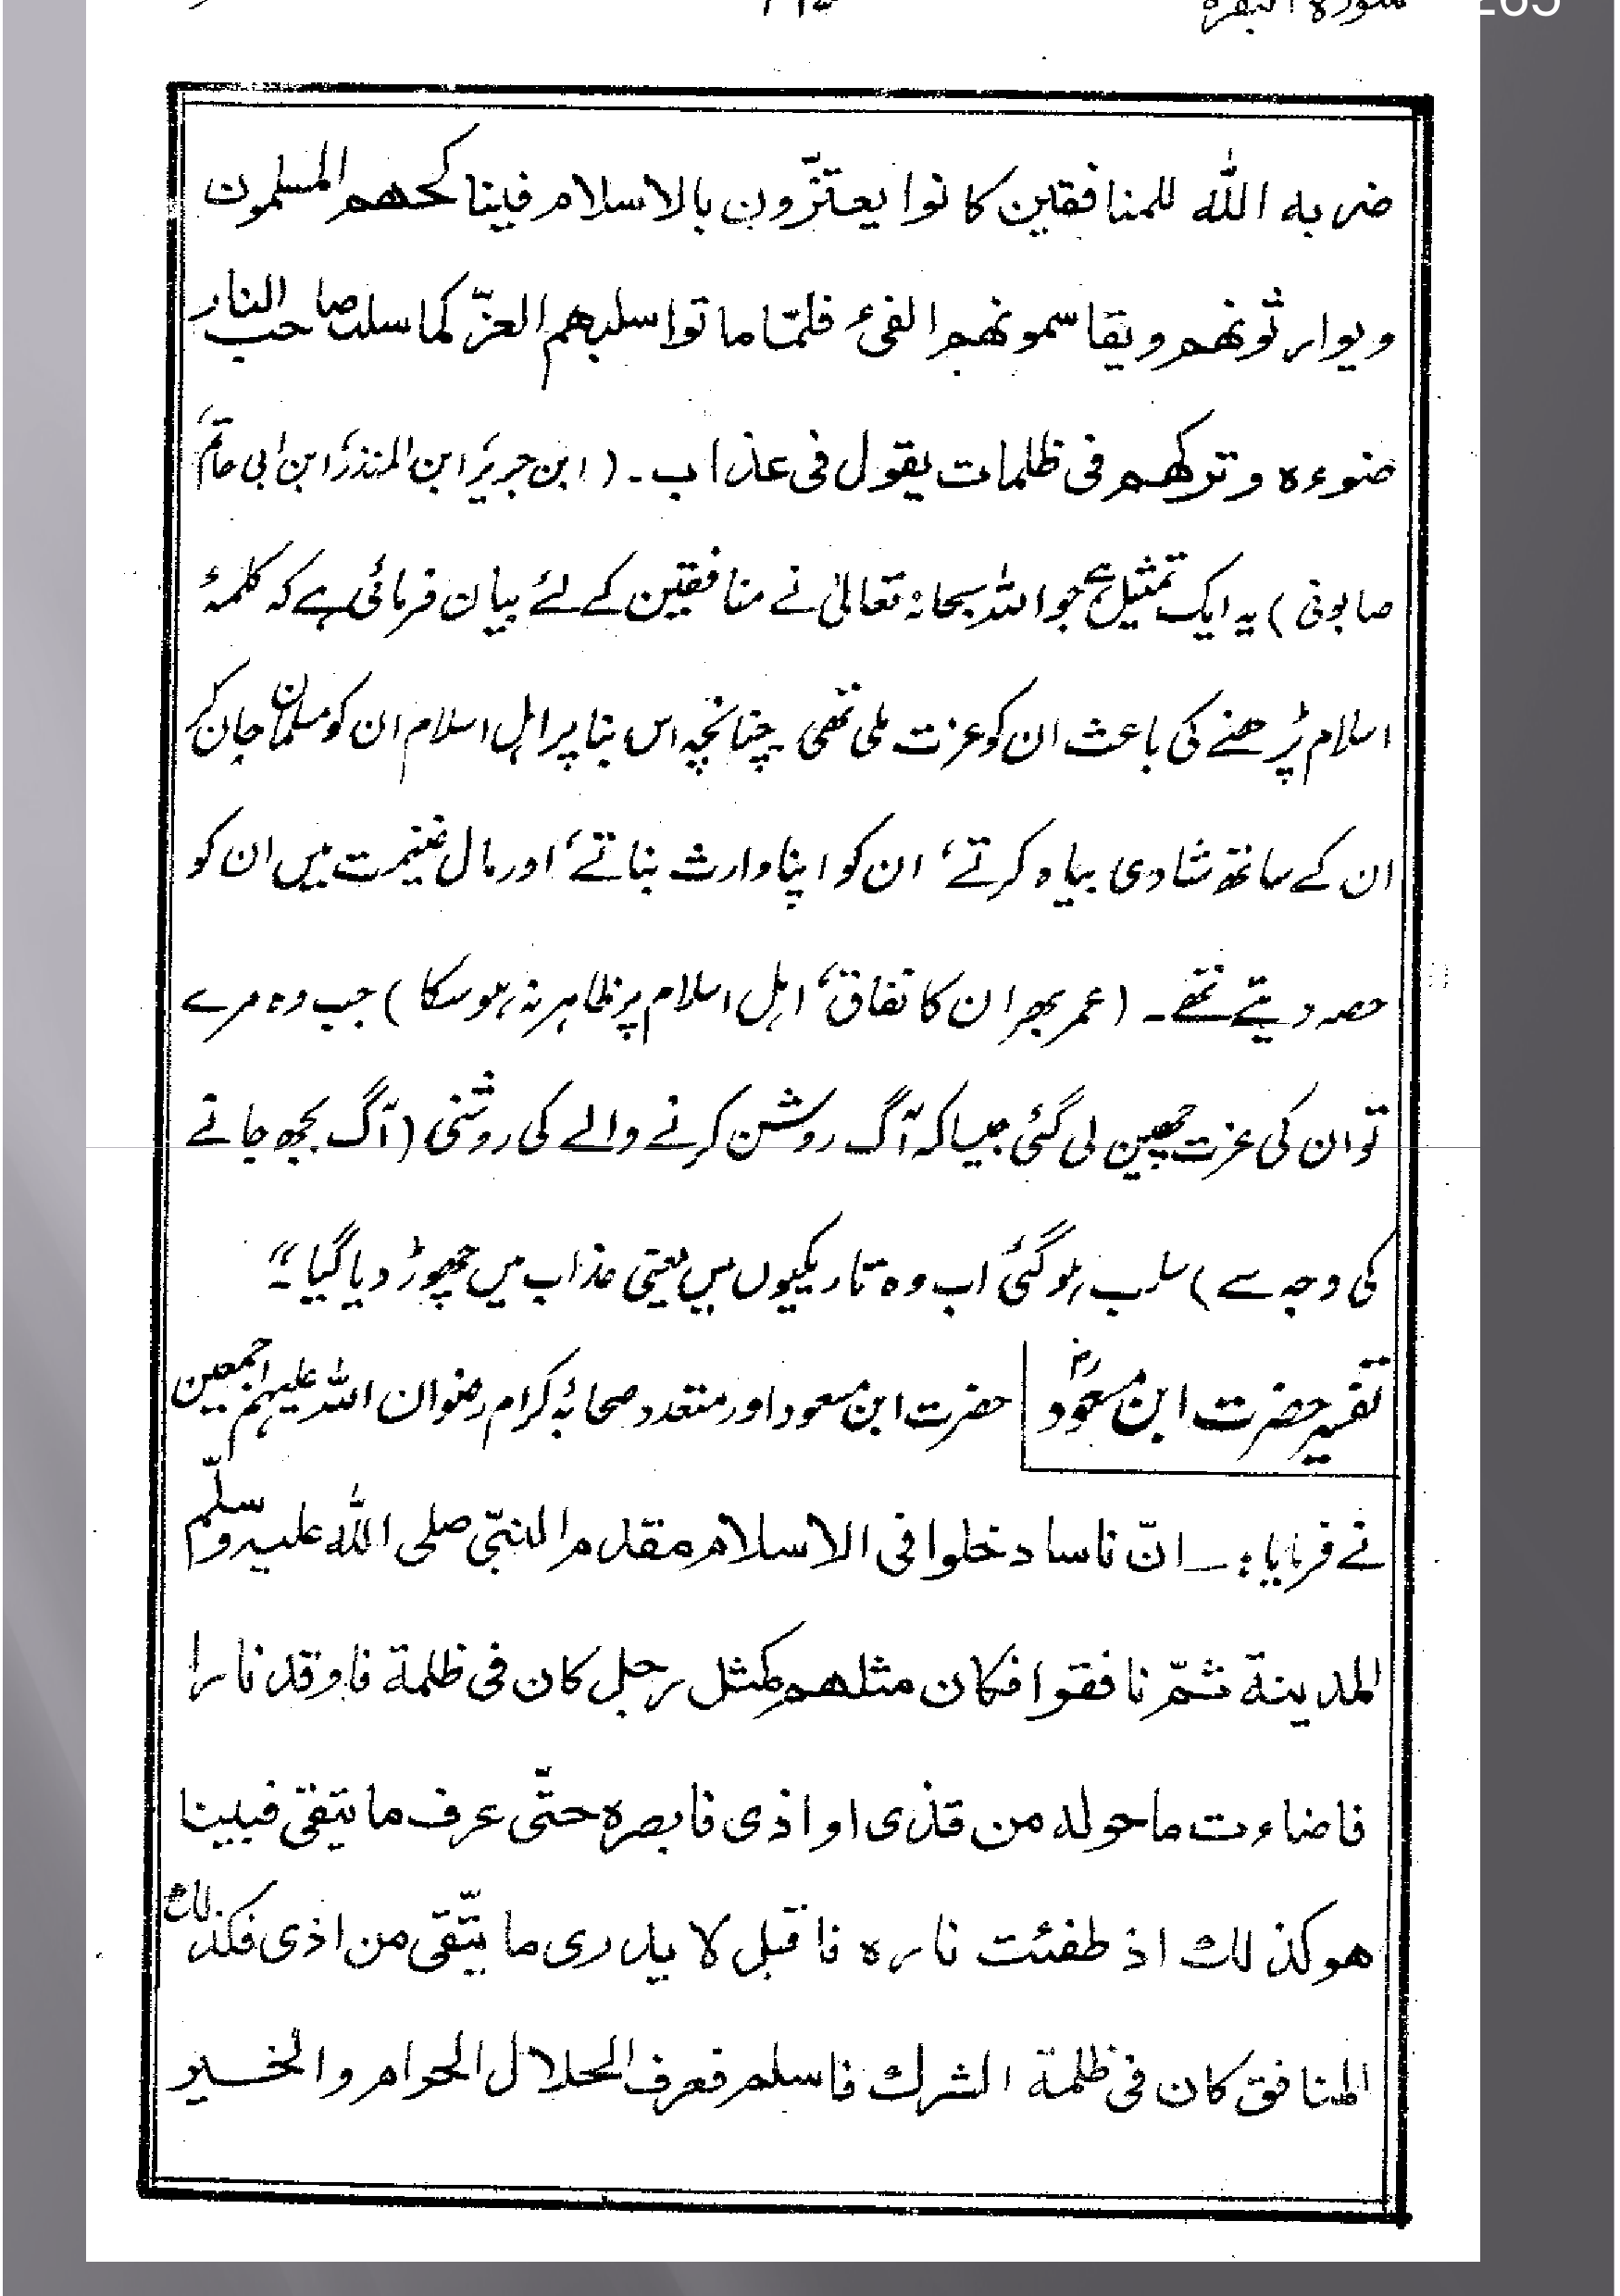 سورة البقرة 265
ضربه الله للمنافقین کانوا یعتزّون بالاسلام فیناکحهم المسلمون
ویوارثونهم ویقاسمونهم الفیٔ فلمّا ماتوا سلبهم العزّ کما سلب صاحب النار
ضوءہ وترکهم فی ظلمات یقول فی عذاب۔ (ابن جریر، ابن المنذر، ابن ابی حاتم،
صابونی) یہ ایک تمثیل ہے جو اللہ سبحانہٗ تعالیٰ نے منافقین کے لئے بیان فرمائی ہے کہ کلمۂ
اسلام پڑھنے کی باعث ان کو عزت ملی تھی۔ چنانچہ اس بنا پر اہل اسلام ان کو مسلمان جان کر
ان کے ساتھ شادی بیاہ کرتے، ان کو اپنا وارث بناتے، اور مال غنیمت میں ان کو
حصہ دیتے تھے۔ (عمر بھر ان کا نفاق، اہل اسلام پر ظاہر نہ ہو سکا) جب وہ مرے
تو ان کی عزت چھین لی گئی جیسا کہ آگ روشن کرنے والے کی روشنی (آگ بجھ جاتے
کی وجہ سے) سلب ہو گئی اب وہ تاریکیوں میں یعنی عذاب میں چھوڑ دیا گیا۔"
تفسیر حضرت ابن مسعودؓ حضرت ابن مسعود اور متعدد صحابۂ کرام رضوان اللہ علیہم اجمعین
نے فرمایا:۔ انّ ناسا دخلوا فی الاسلام مقدم النبّی صلی اللّٰہ علیہ وسلّم
المدینة ثمّ نافقوا فکان مثلهم کمثل رجل کان فی ظلمة فاوقد نارا
فاضاءت ماحوله من قذی او اذی فابصرہ حتّی عرف ما یتقی فبینا
هو کذلك اذ طفئت نارہ فاقبل لا یدری ما یتّقی من اذی فکذلك
المنافق کان فی ظلمة الشرك فاسلم فعرف الحلال الحرام والخیر